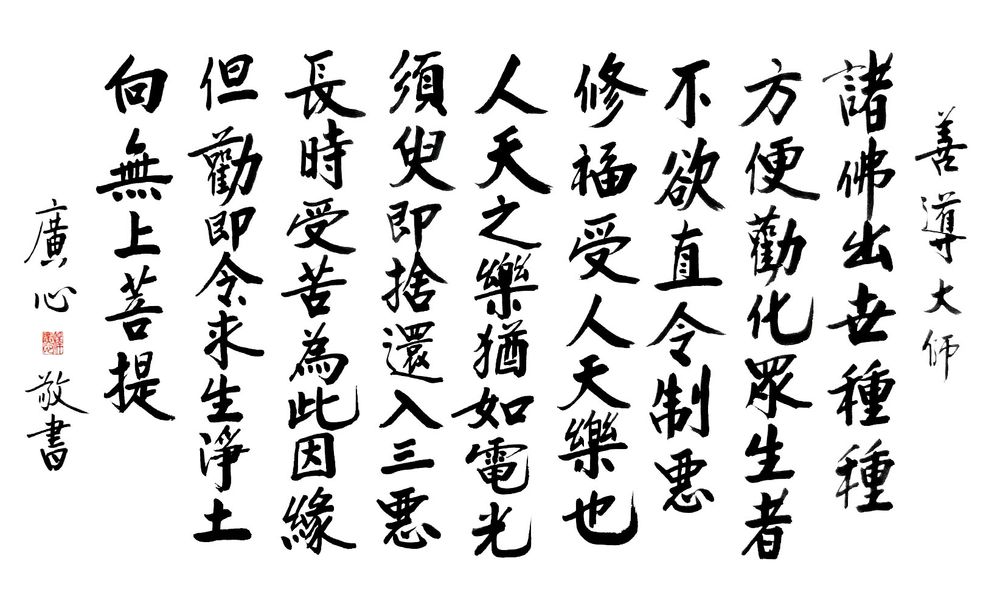 善導大師
諸佛出世種種
方便勸化眾生者
不欲直令制惡
修福受人天樂也
人天之樂猶如電光
須臾即捨還入三惡
長時受苦為此因緣
但勸即令求生淨土
向無上菩提
廣心
敬書